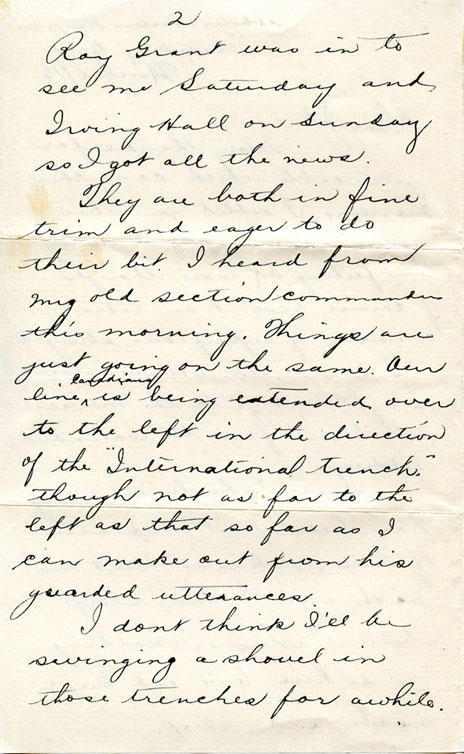 2
Roy Grant was in to
see me Saturday and
Irving Hall on Sunday
so I got all the news.
They are both in fine
trim and eager to do
their bit. I heard from
my old section commander
this morning. Things are
just going on the same. Our
Canadian
line ^ is being extended over
to the left in the direction
of the "International trench."
though not as far to the
left as that so far as I
can make out from his
guarded utterances.
I dont think I'll be
swinging a shovel in
those trenches for awhile.